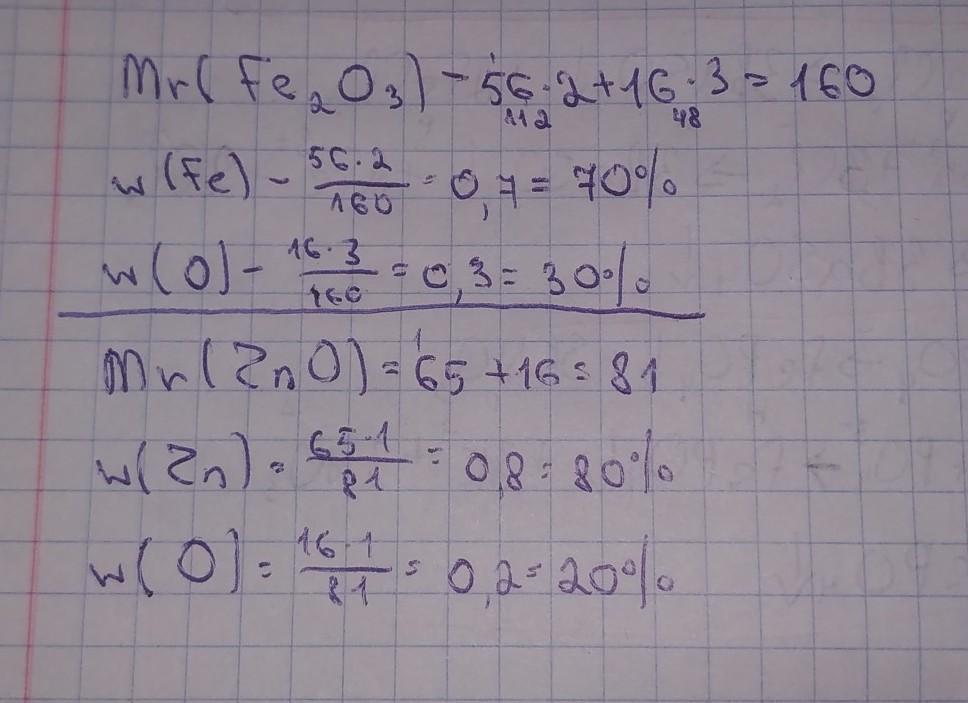 Mr(Fe₂O₃) - 56·2+16·3 = 160
112 48
w(Fe) - 56·2/160 = 0,7 = 70%
w(O) - 16·3/160 = 0,3 = 30%
Mr(ZnO) = 65 + 16 = 81
w(Zn) = 65·1/81 = 0,8 = 80%
w(O) = 16·1/81 = 0,2 = 20%